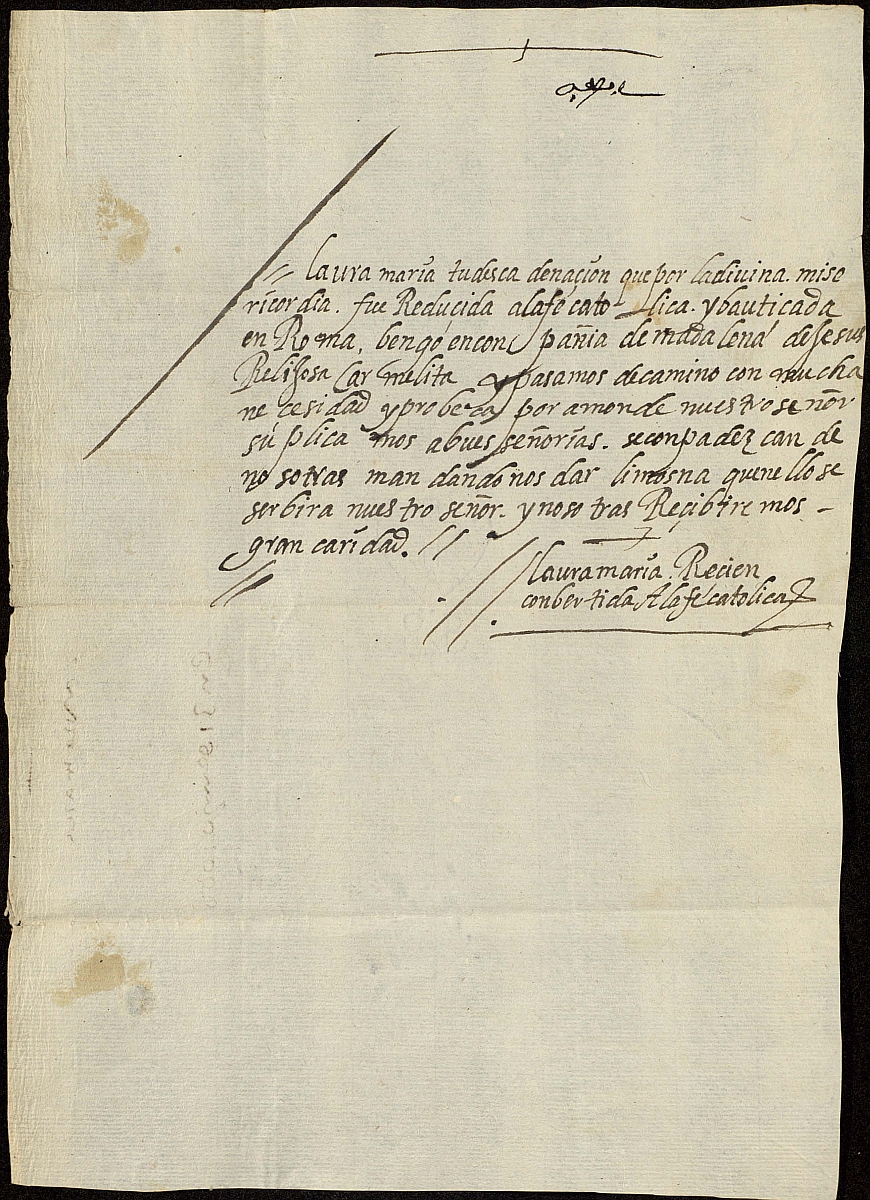 laura maria tudesca denaçion que por ladivina mise
ricordia. fue Reducida alafe cato lica. y bauticada
en Roma, bengo encon pañia de madalena de Jesus
Relijosa Carmelita y pasamos decamino con mucha
necesidad y probeça por amor de nuestro señor
suplica mos abues señorias. seconpadezcan de
nosotras man dandonos dar limosna quenello se
serbira nuestro señor. y noso tras Recibiremos -
gran caridad. //
laura maria. Recien
conbertida A la fe catolica